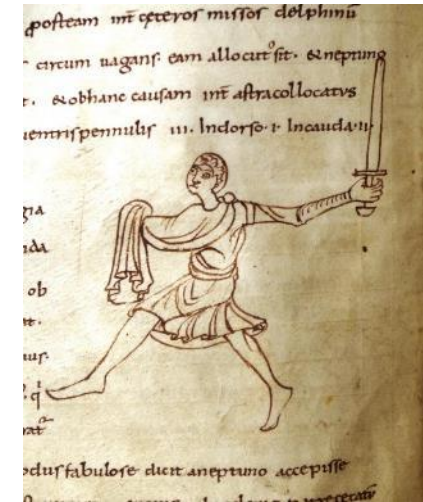 posteam int ceteros missos delphinū
circum uagans. eam allocut' sit. & neptung
t. & ob hanc causam int astra collocatvs
uentris pennulis III. In dorso. I. In cauda. II.
gia
da
ob
t.
uur.
. qi
rat
odus fabulose dicit a neptuno accepisse